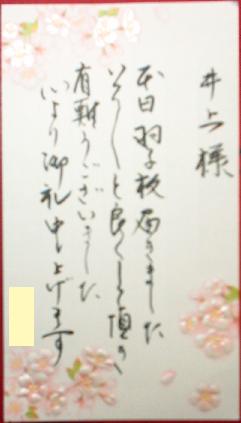 井上様
本日羽子板届きました
いろいろと良くして頂き
有難うございました
心より御礼申し上げます